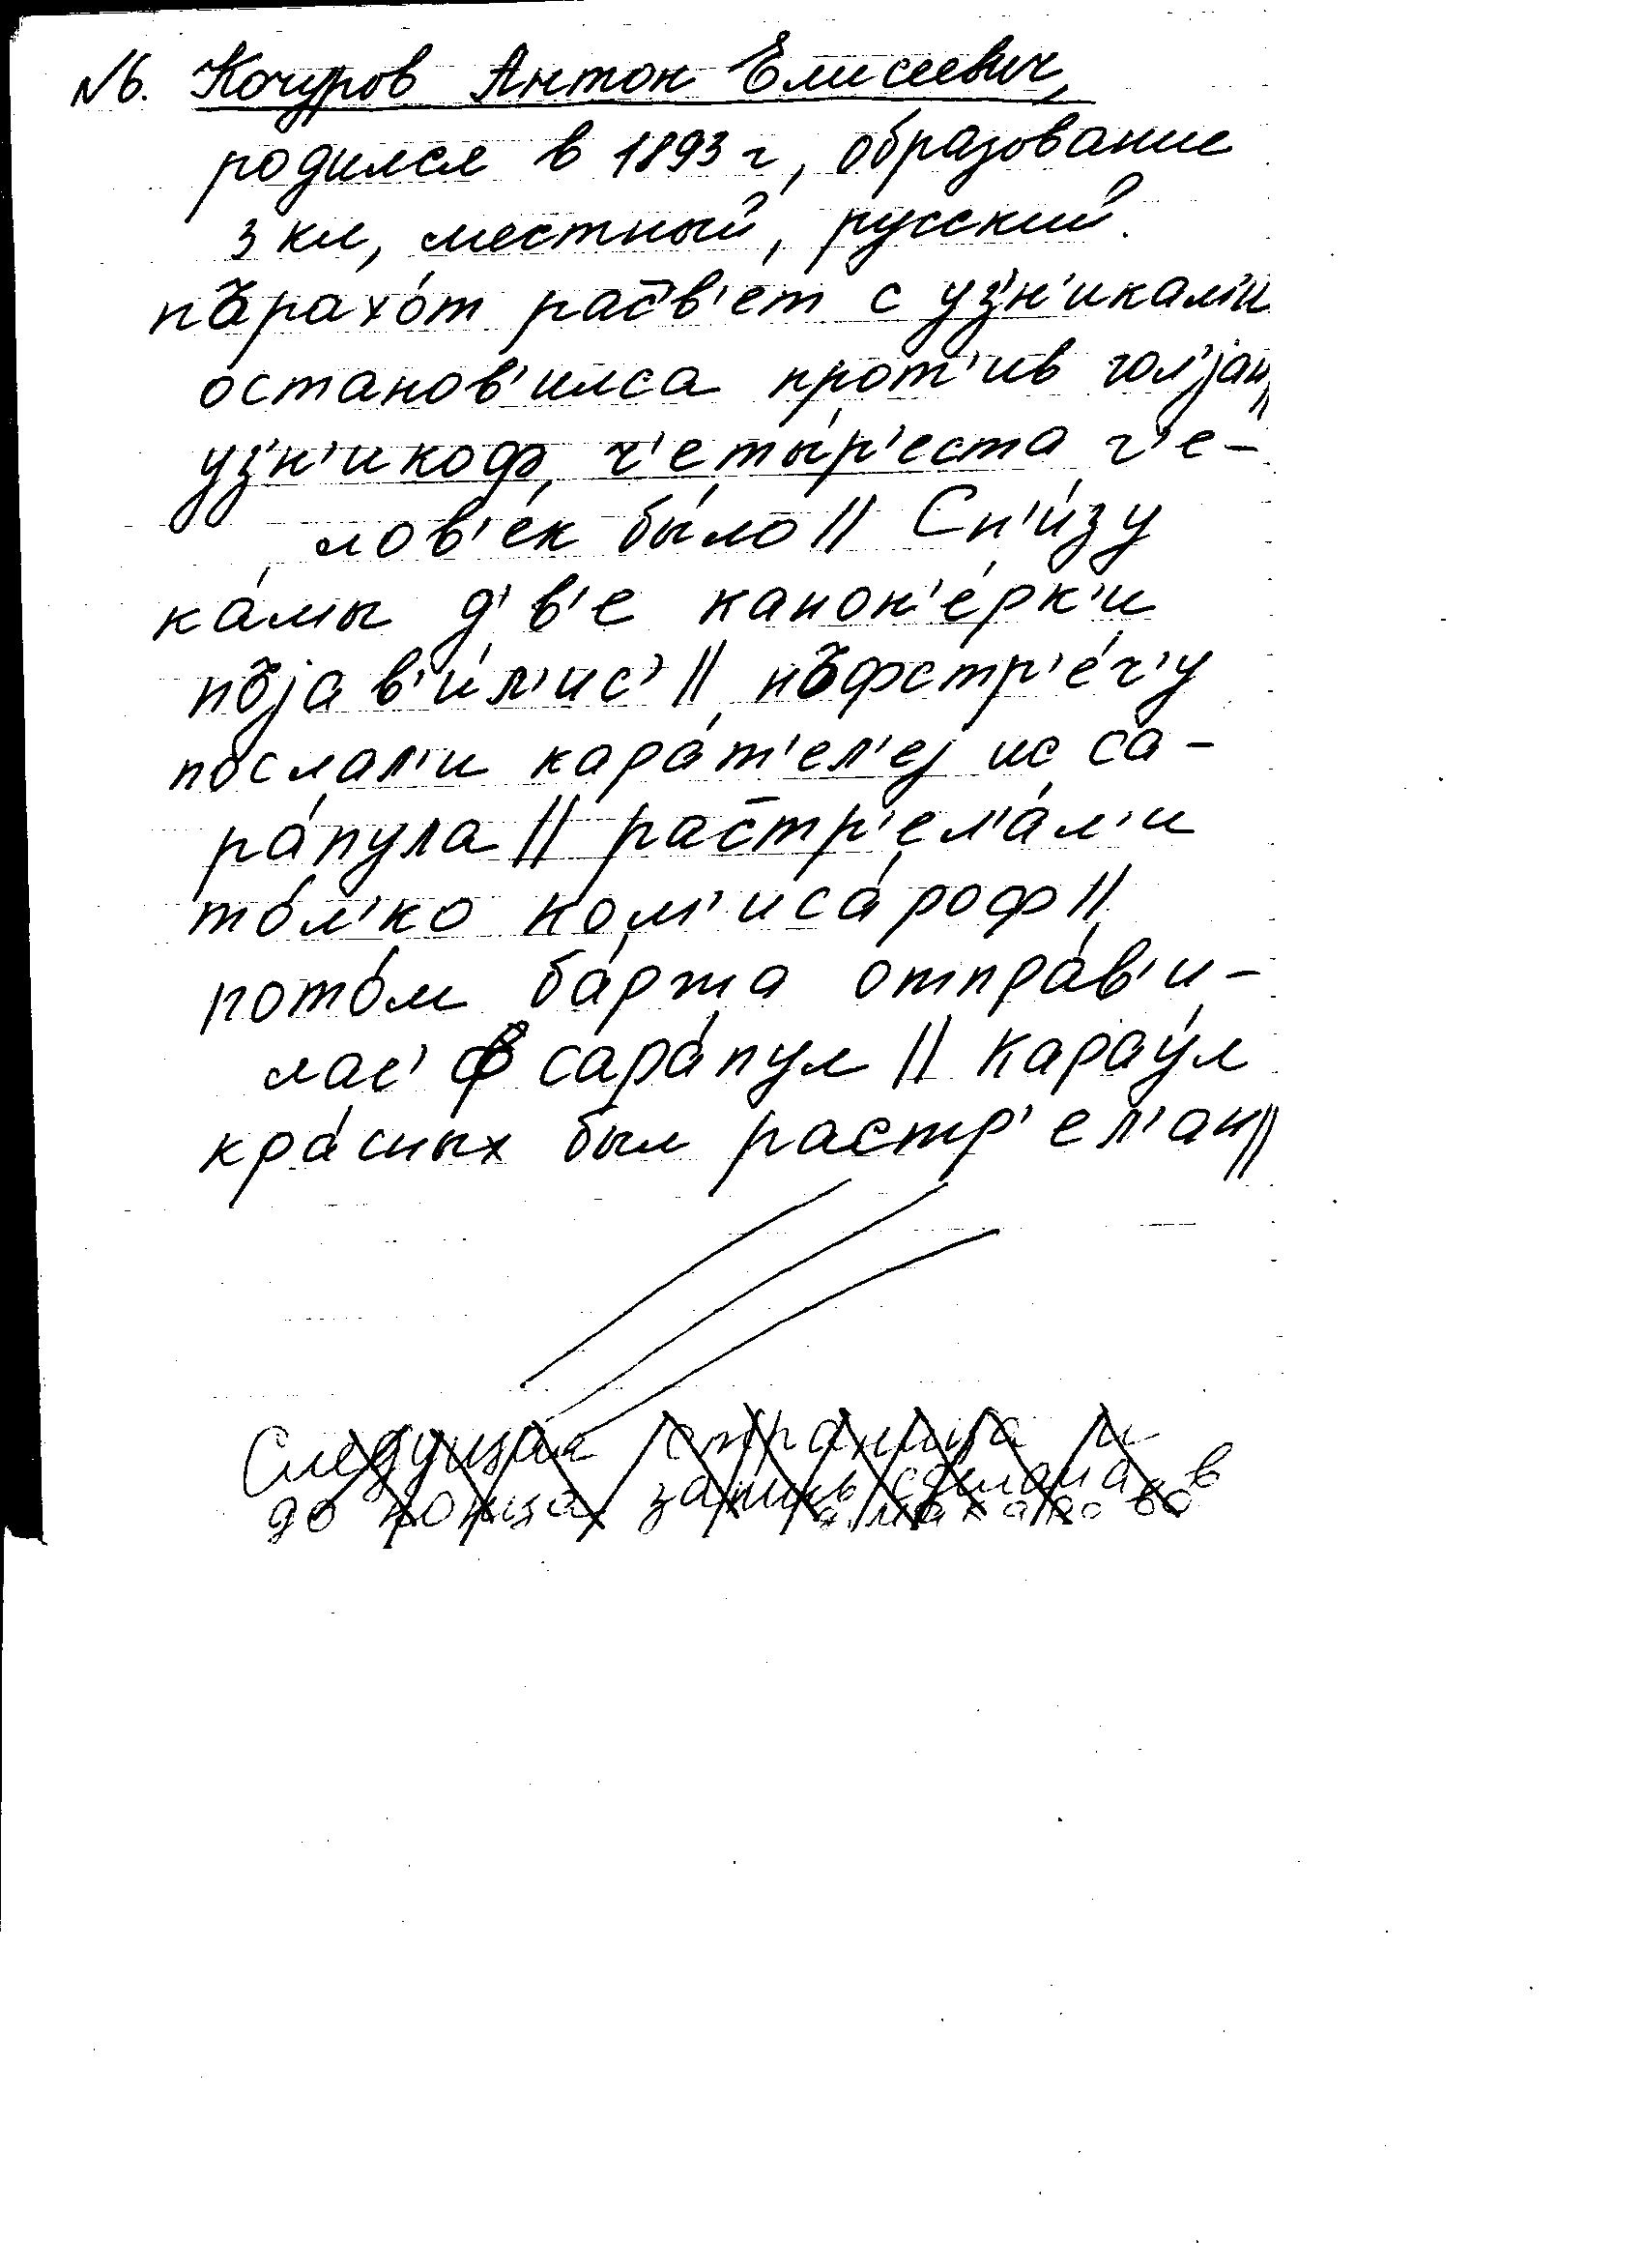 №6. Кочуров Антон Елисеевич,
родился в 1893 г, образование
3 кл, местный, русский.
пъарахо́т расв'ет с уз'н'икам'и
останов'илса прот'ив гол'jан||
уз'н'икоф, ч'еты́р'еста ч'е-
лов'е́к бы́ло || Сн'и́зу
ка́мы д'в'е канон'е́рк'и
поjав'и́л'ис' || нъфстр'е́ч'у
послал'и кара́т'ел'еj ис са-
ра́пула || растр'ел'а́л'и
то́л'ко ком'иса́роф ||
пото́м ба́ржа отпра́в'и-
лас' ф сара́пул || карау́л
кра́сных был растр'ел'ан ||
Следущая страница и
до конца запись сделана в